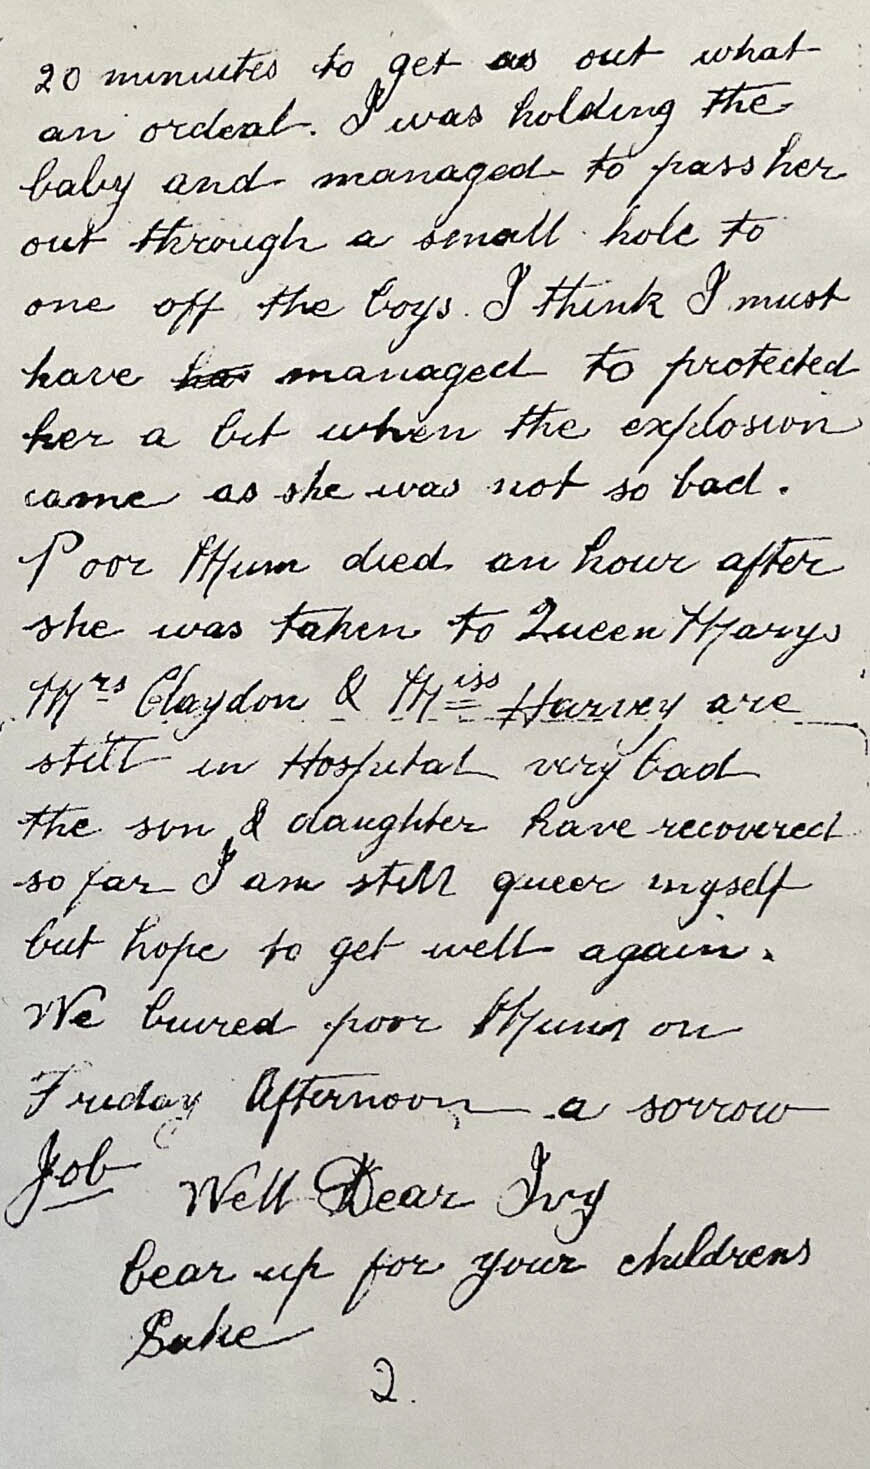 20 miniutes to get us out what
an ordeal. I was holding the
baby and managed to pass her
out through a small hole to
one off the boys. I think I must
have managed to protected
her a bit when the explosion
came as she was not so bad.
Poor Mum died an hour after
she was taken to Queen Marys
Mrs Claydon & Miss Harvey are
still in Hospital very bad
the son & daughter have recovered
so far I am still queer myself
but hope to get well again.
We buired poor Mum on
Friday Afternoon a sorrow
Job Well Dear Ivy
bear up for your childrens
Sake
2.